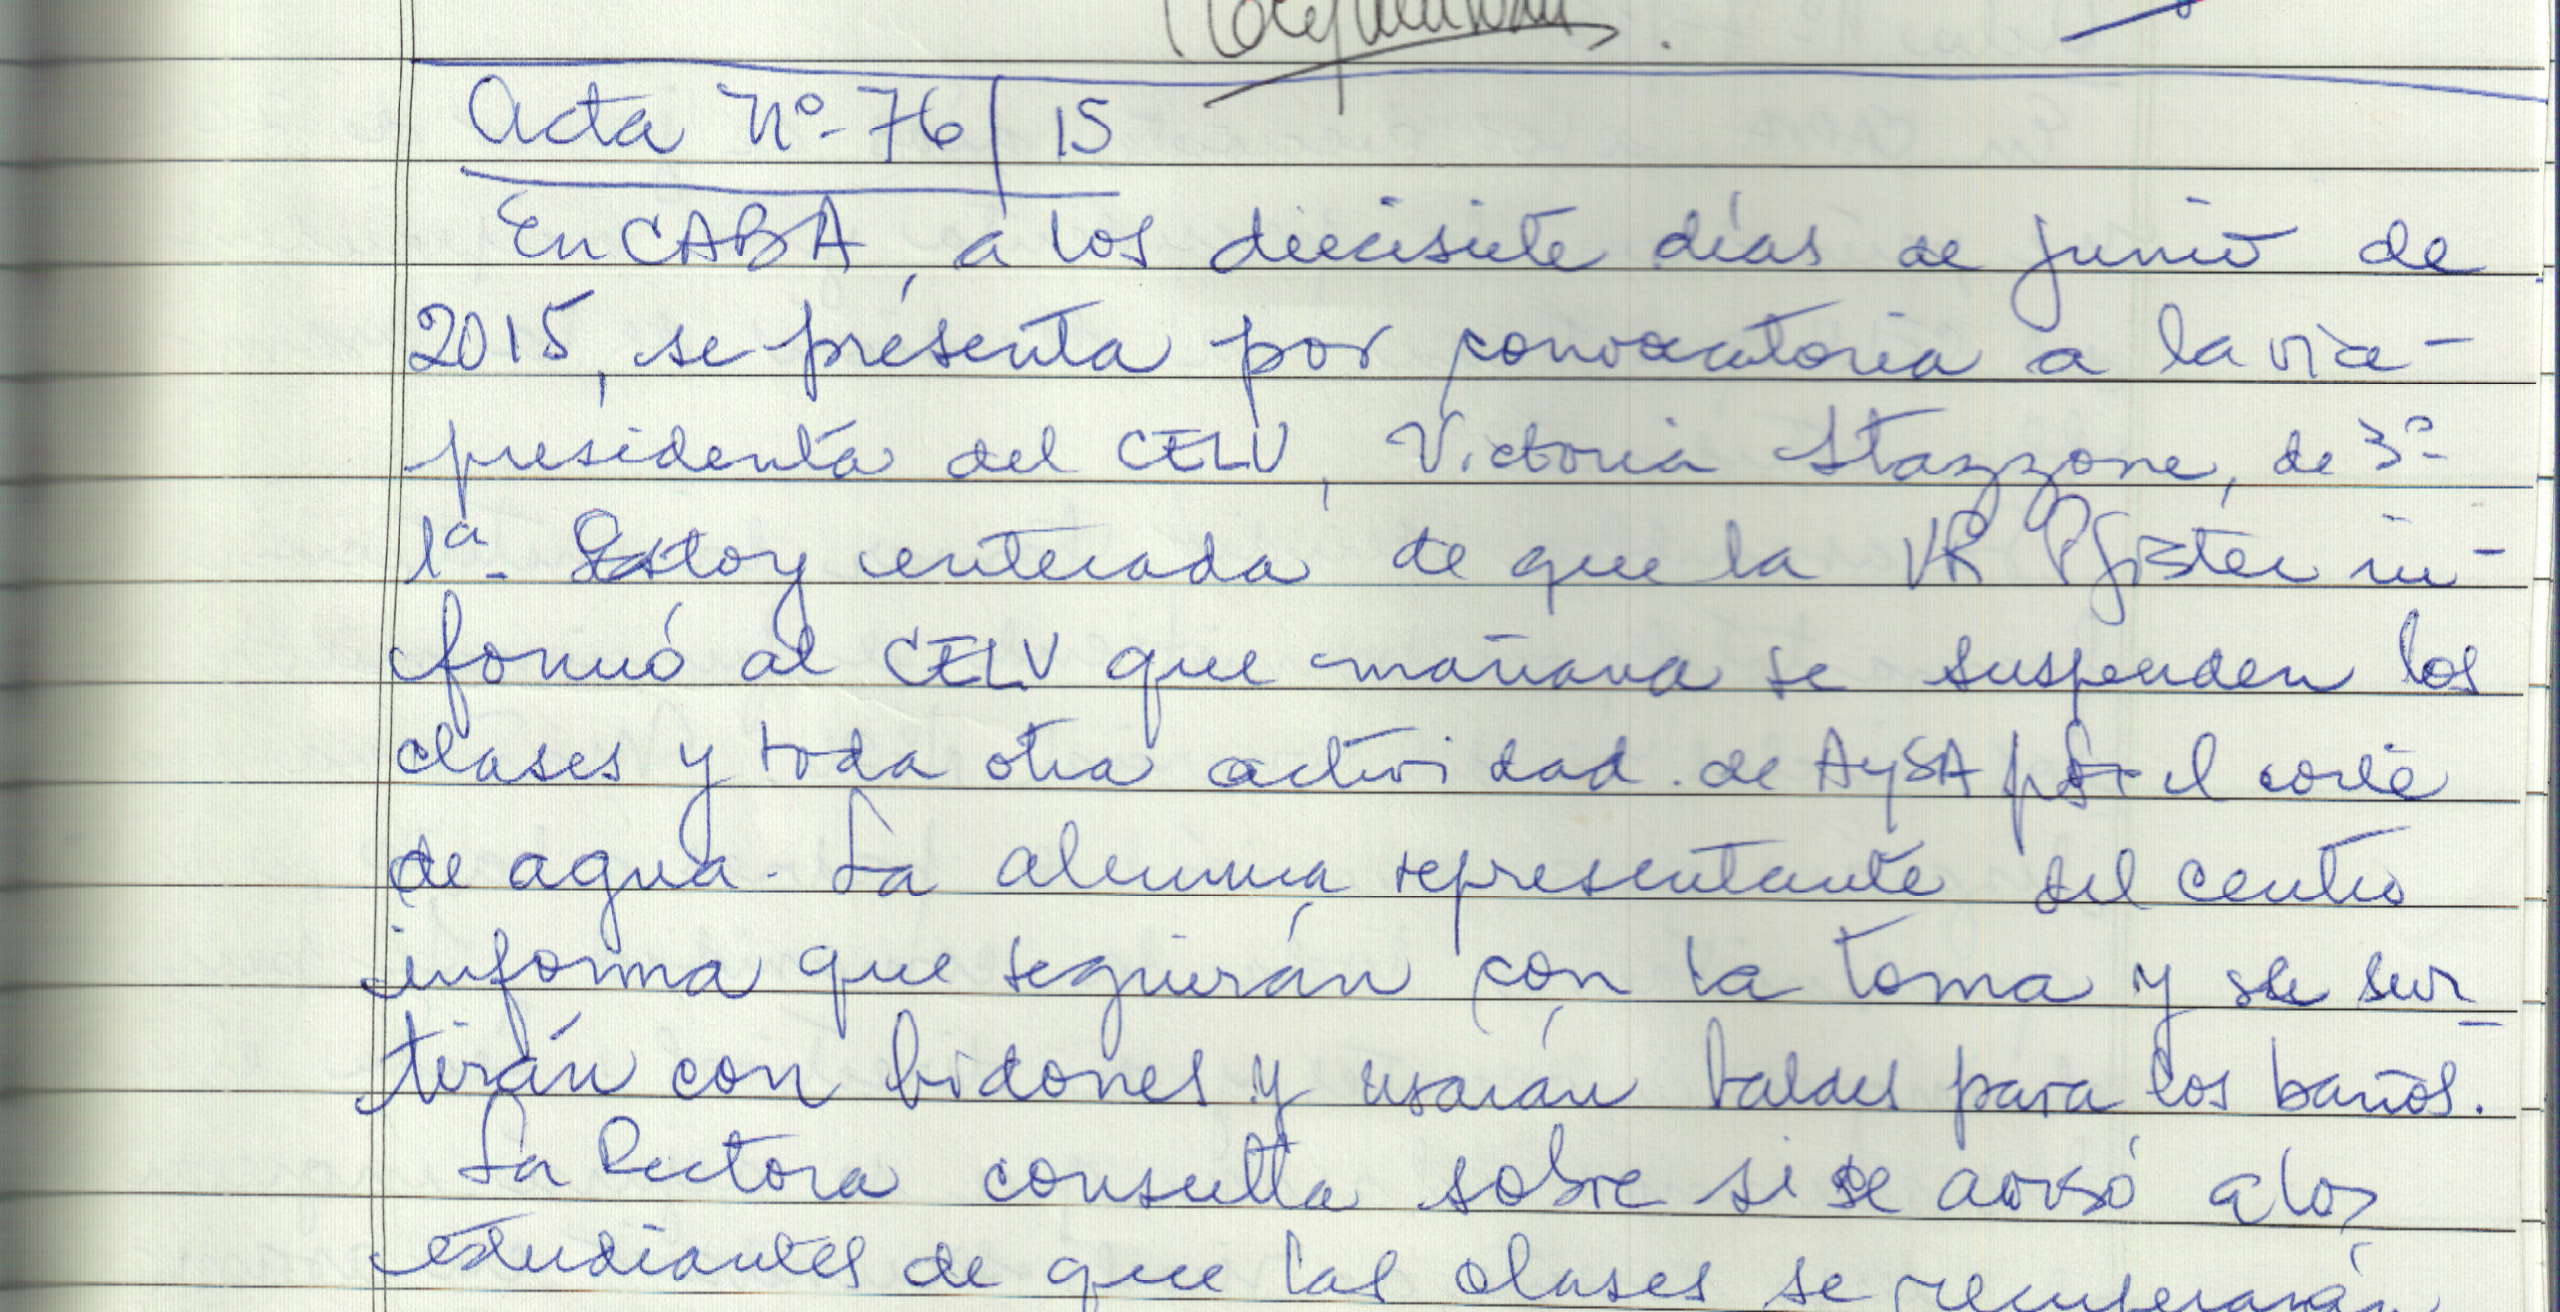 Acta Nº 76/15
En CABA, a los diecisiete días de junio de
2015, se presenta por convocatoria a la vice-
presidenta del CELV, Victoria Stazzone, de 3º
1ª. Estoy enterada de que la VR Pfister in-
formó al CELV que mañana se suspenden los
clases y toda otra actividad. de AySA por el corte
de agua. La alumna representante del centro
informa que seguirán con la toma y se sur-
tirán con bidones y usarán baldes para los baños.
La Rectora consulta sobre si se avisó a los
estudiantes de que las clases se recuperarán